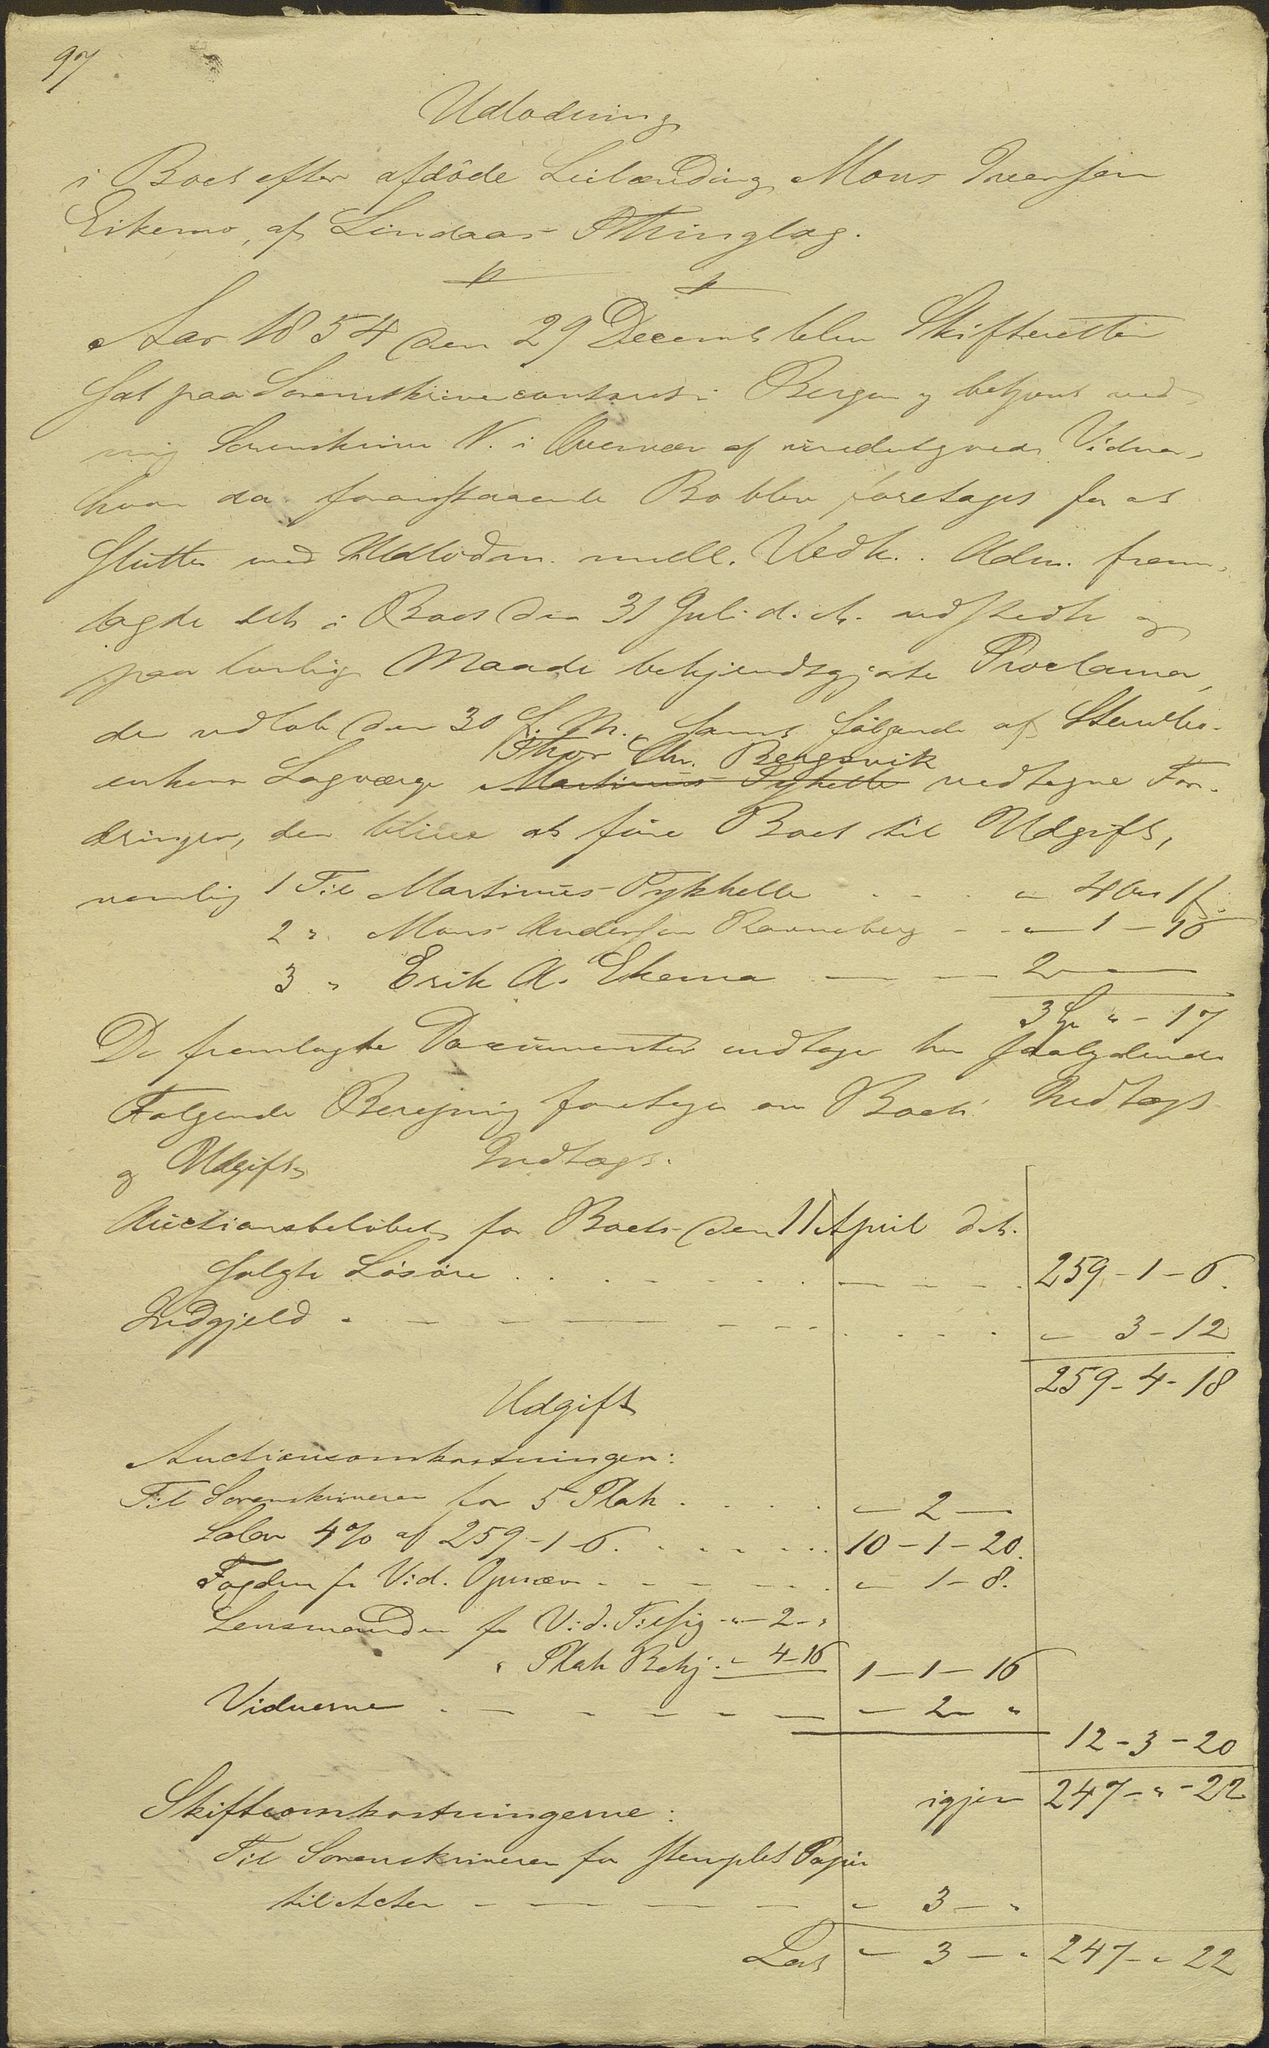 97
Udlodning
i Boet efter afdöde Leilænding Mons Iversen
Eikemo, af Lindaas Thinglag.
Aar 1854 den 29 Decemb blev Skifteretten
sat paa Sorenskrivercontoret i Bergen og betjent ved
mig Sorenskriver N. i Overvær af undertegnede Vidner,
hvor da foranstaaende Bo blev foretaget for at
slutte med Udlodn. mell. Vedk. Adm. frem-
lagde det i Boet den 31 Juli d. A. udstedte og
paa lovlig Maade bekjendtgjorte Proclama,
der udlöb den 30 f. M., samt fölgende af
Thor Chr. Bergsvik
enkens Lagværge Martinus Tykhelle vedtagne For-
dringer, der blive at före Boet til Udgift,
nemlig 1 Til Martinus Tykhelle . . . " 4 Ort 1 s.
2 " Mons Andersen Ravneberg - - " - 1 - 16
3 " Erik A. Ekemo — — — 2 — —
3 Sp " - 17
De fremlagte Documenter
Følgende Beregning foretages over Boets Indtægt
og Udgift Indtægt.
Auctionsbelöbet for Boets den 11 April d. A.
solgte Lösöre . . . . . . 259 - 1 - 6.
Indgjeld - - - - - " 3 - 12
259 - 4 - 18
Udgift
Auctionsomkostninger:
Til Sorenskriveren for 5 Plak. . . . . — 2 —
Salær 4% af 259 - 1 - 6. . . . . . 10 - 1 - 20.
Fogden for Vid. Opnævn - - - - - " 1 - 8.
Lensmanden for Vid. Tilsig. " - 2 - "
" Plak Bekj. " 4 - 16 1 - 1 - 16
Vidnerne . - - - - — 2 - "
12 - 3 - 20
Skifteomkostningerne: igjen 247 - " - 22
Til Sorenskriveren for stemplet Papir
til Acten - - - - - " 3 - "
Lat. " 3 - " 247 - " 22